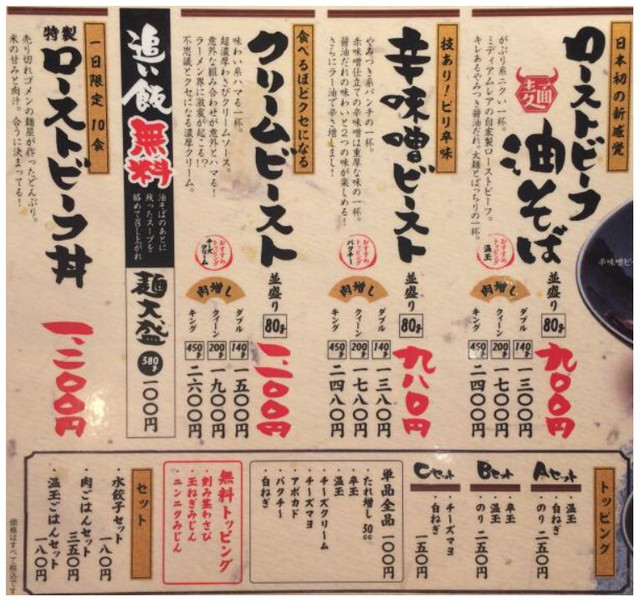 日本初の新感覚
ローストビーフ
油そば
がぶり系ニクい一杯。
ミディアムレアの自家製ローストビーフ。
キレあるやみつき醤油だれ。太麺とばっちりの一杯。
おすすめ
トッピング
温玉
並盛り
80g
九〇〇円
肉増し
ダブル
140g
一三〇〇円
クィーン
200g
一七〇〇円
キング
450g
二四〇〇円
技あり!ピリ辛味
辛味噌ビースト
やみつき系パンチの一杯。
赤味噌仕立ての辛味噌は重厚な味の一杯。
醤油だれの味わいと2つの味が楽しめる!
さらにラー油で辛さ増しまし!
おすすめ
トッピング
パクチー
並盛り
80g
九八〇円
肉増し
ダブル
140g
一三八〇円
クィーン
200g
一七八〇円
キング
450g
二四八〇円
食べるほどクセになる
クリームビースト
味わい系ハマる一杯。
超濃厚わさびクリームソース。
意外な組み合わせが意外とハマる!
ラーメン界に激変が起こる!?
不思議とクセになる濃厚クリーム。
おすすめ
トッピング
チーズクリーム
並盛り
80g
一、一〇〇円
肉増し
ダブル
140g
一五〇〇円
クィーン
200g
一九〇〇円
キング
450g
二六〇〇円
追い飯
無料
油そばのあとに
残ったスープを
絡めて召し上がれ
麺大盛
380g
一〇〇円
一日限定10食
特製
ローストビーフ丼
売り切れゴメンの麺屋が作ったどんぶり。
米の甘みと肉汁。合うに決まってる!
一、二〇〇円
トッピング
Aセット
・温玉
・白ねぎ
・のり
二五〇円
Bセット
・卒王
・温玉
・のり
二五〇円
Cセット
・チーズマヨ
・白ねぎ
一五〇円
単品全品
一〇〇円
・たれ増し30cc
・卒王
・温玉
・チーズクリーム
・チーズマヨ
・アボカド
・パクチー
・白ねぎ
無料トッピング
・刻み茎わさび
・玉ねぎみじん
・ニンニクみじん
セット
・水餃子セット
一八〇円
・肉ごはんセット
三五〇円
・温玉ごはんセット
一八〇円
価格はすべて税込です